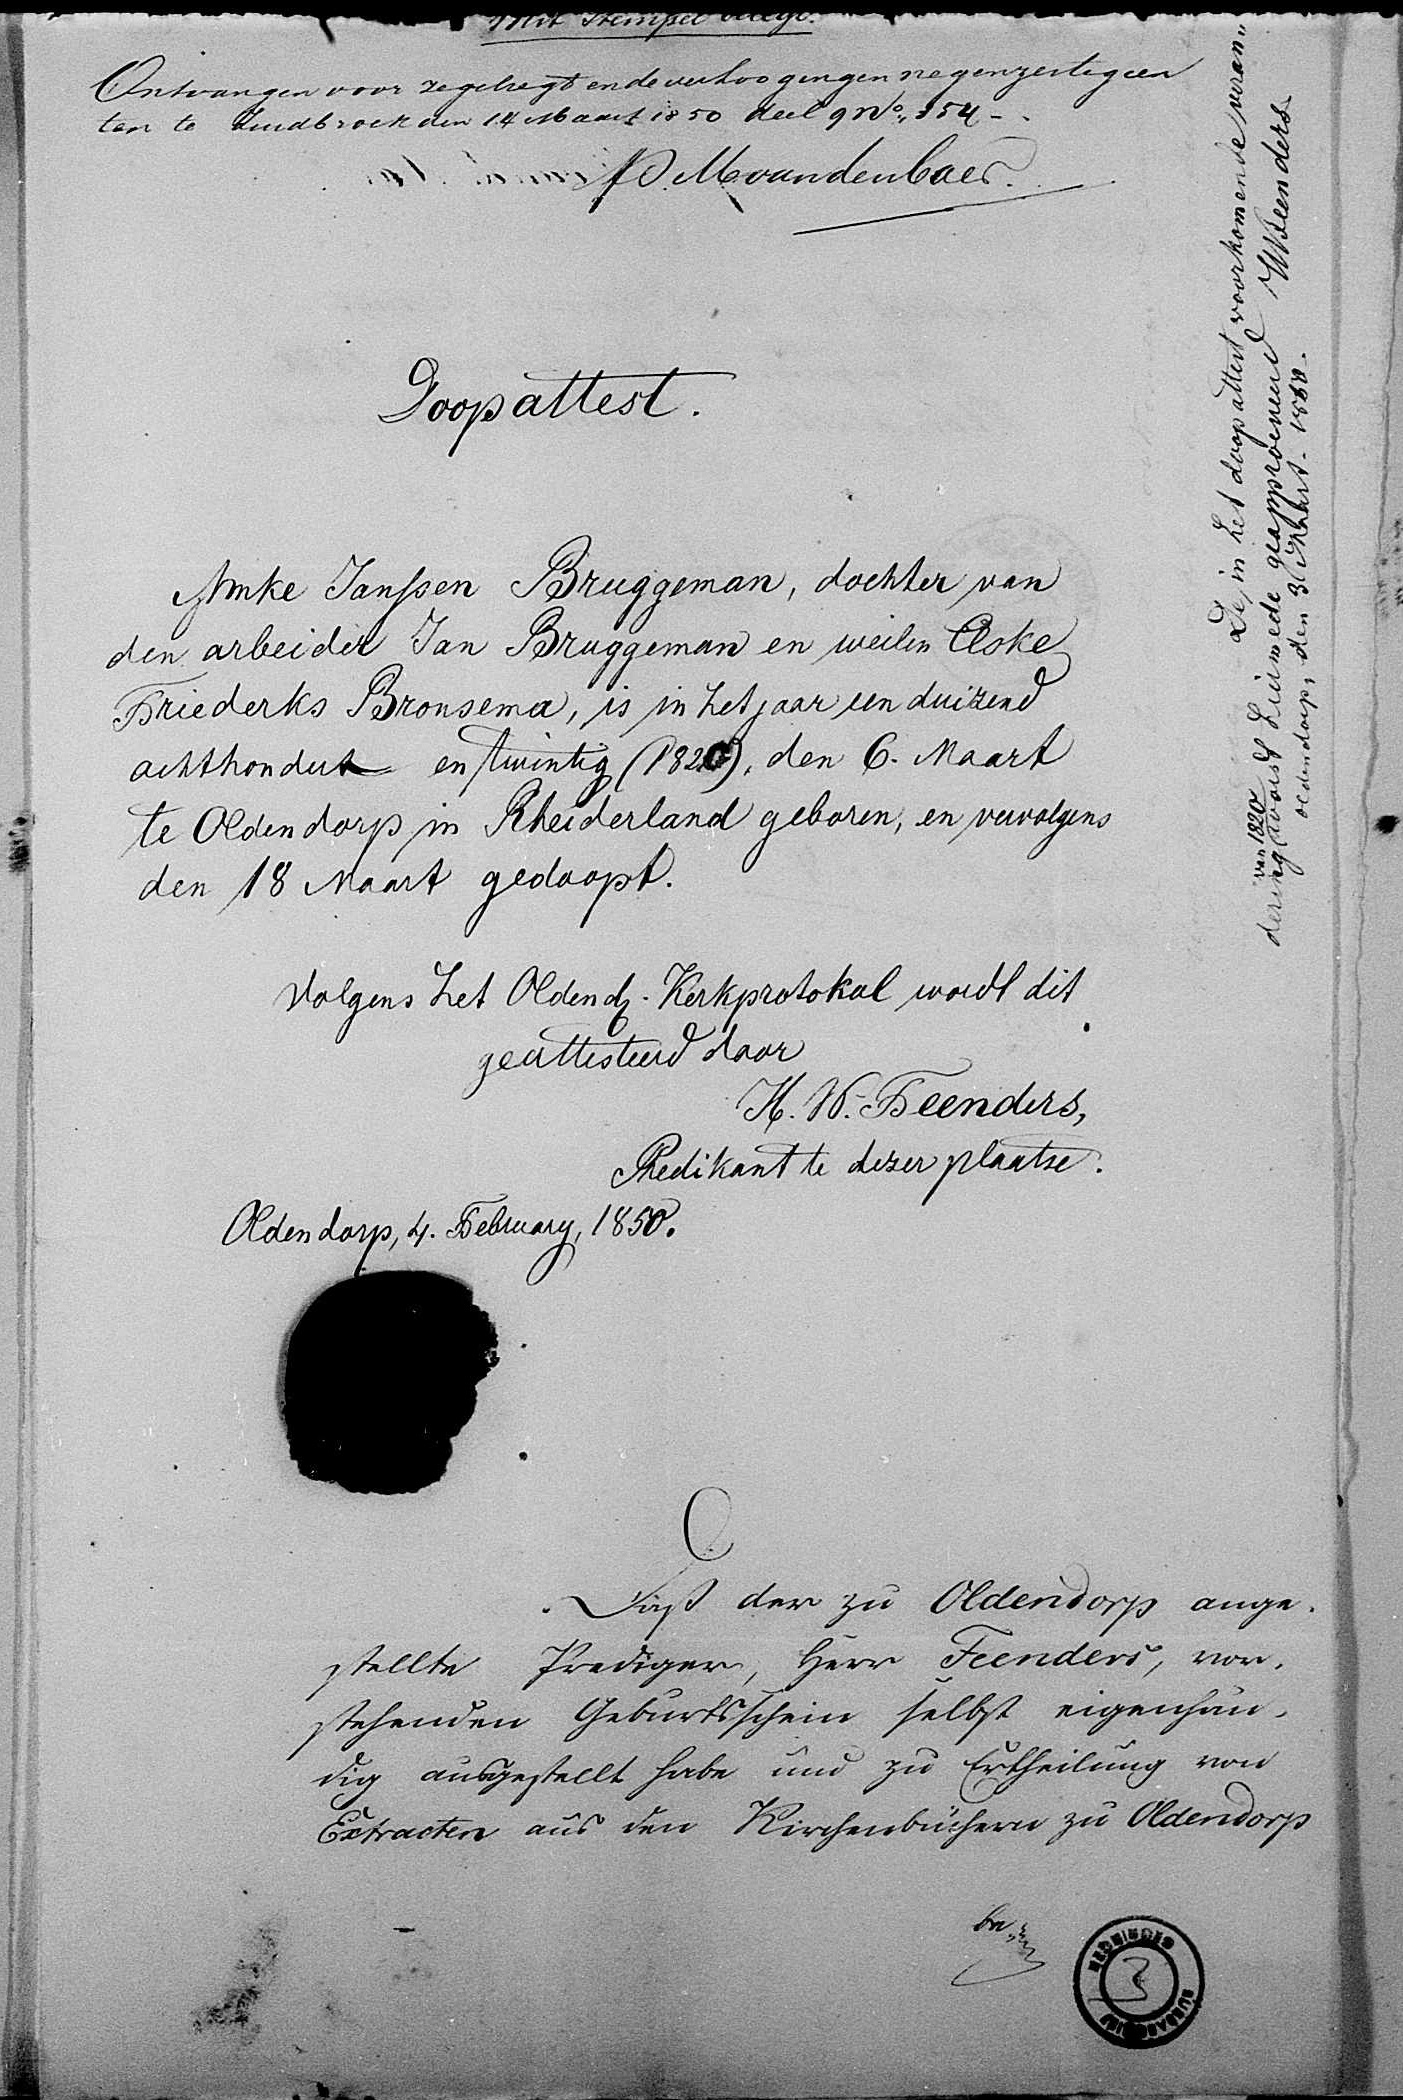 Mit Stempel belegt.
Ontvangen voor zegelregt en de verhoogingen negenzestig cen
ten te Zuidbroek den 14 Maart 1850 deel 9 No. 354 -
Doopattest.
Amke Janssen Bruggeman, dochter van
den arbeider Jan Bruggeman en weilen Elske
Friederks Bronsema, is in het jaar een duizend
achthondert en twintig (1820), den 6. Maart
te Oldendorp in Rheiderland geboren, en vervolgens
den 18 Maart gedoopt.
Volgens het Oldend. Kerkprotokol wordt dit
geattesteerd door
H. W. Feenders,
Predikant te dezer plaatse.
Oldendorp, 4. February, 1850.
De, in het doopattest voorkomende veran„
dering van 1820 wordt hiermede geapproveerd HWFeenders
Oldendorp, den 3 Maart. 1850.
Daß der zu Oldendorp ange-
stellte Prediger, Herr Feenders, vor-
stehenden Geburtsschein selbst eigenhän-
dig ausgestellt habe und zu Ertheilung von
Extracten aus den Kirchenbüchern zu Oldendorp
be